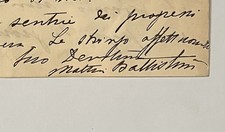 sentire dei progressi
Le stringo affettuosa
Suo Devotmo
Mattia Battistini